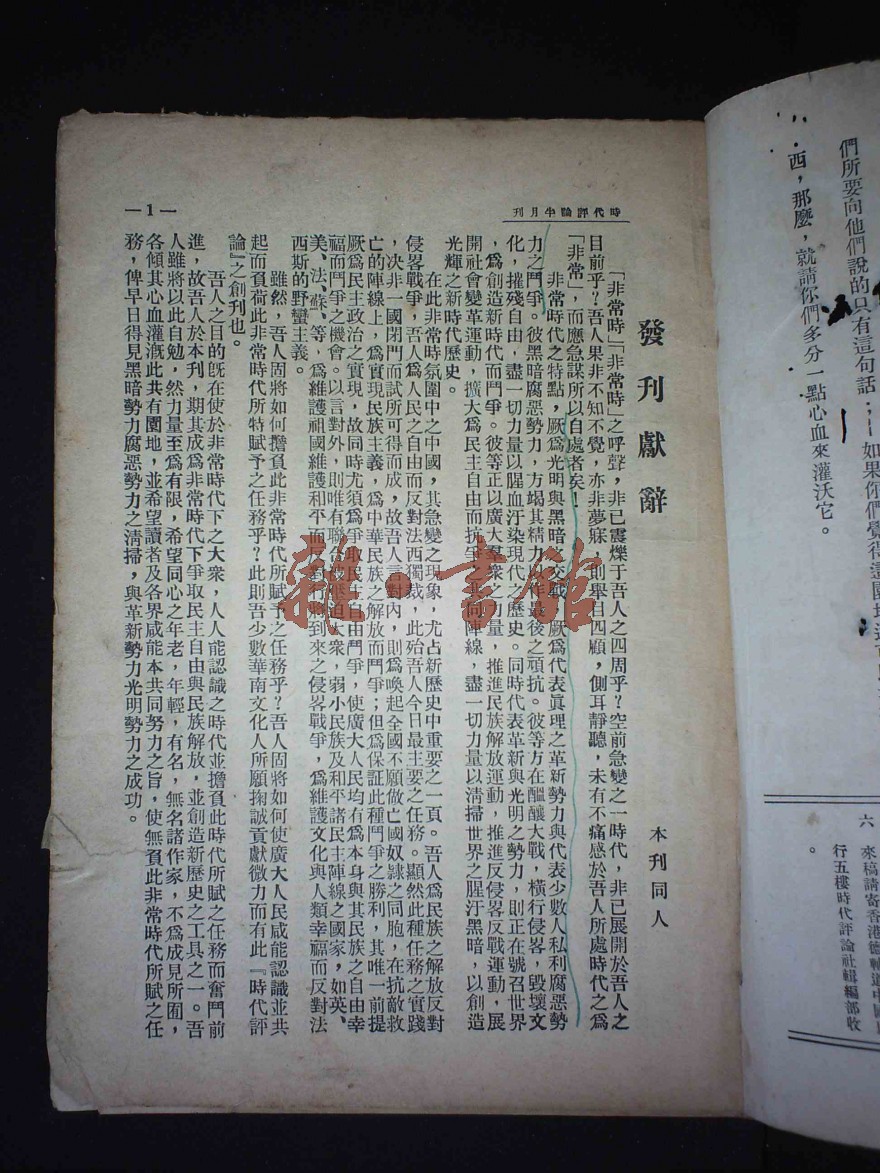 們所要向他們說的只有這句話；——如果你們覺得這園地
西，那麼，就請你們多分一點心血來灌沃它。
六　來稿請寄香港德輔道中國
行五樓時代評論社輯編部收
。
時代評論半月刊
發刊獻辭
本刊同人
「非常時」「非常時」之呼聲，非已震爍于吾人之四周乎？空前急變之一時代，非已展開於吾人之
目前乎？吾人果非不知不覺，亦非夢寐，則舉目四顧，側耳靜聽，未有不痛感於吾人所處時代之爲
「非常」，而應急謀所以自處者矣！
非常時代之特點，厥爲光明與黑暗之交戰，厥爲代表眞理之革新勢力與代表少數人私利腐惡勢
力之鬥爭。彼黑暗腐惡勢力，方竭其精力，作最後之頑抗。彼等方在醞釀大戰，橫行侵畧，毀壞文
化，摧殘自由，盡一切力量以腥血汙染現代之歷史。同時代表革新與光明之勢力，則正在號召世界
，爲創造新時代而鬥爭。彼等正以廣大羣衆之力量，推進民族解放運動，推進反侵畧反戰運動，展
開社會變革運動，擴大爲民主自由而抗爭之共同陣線，盡一切力量以清掃世界之腥汙黑暗，以創造
光輝之新時代歷史。
在此非常時氛圍中之中國，其急變之現象，尤占新歷史中重要之一頁。吾人爲民族之解放反對
侵畧戰爭，吾人爲人民之自由而反對法西獨裁，此殆吾人今日最主要之任務。顯然此種任務之實踐
，決非一國閉門而試所可得而成，故吾人言對內，則爲喚起全國不願做亡國奴隸之同胞，在抗敵救
亡的陣線上，爲實現民族主義，爲中華民族之解放而鬥爭；但爲保証此種鬥爭之勝利，其唯一前提
厥爲民主政治之實現，故同時尤須爲爭取民主自由鬥爭，使廣大人民均有爲本身與其民族之自由幸
福而鬥爭之機會。以言對外，則唯有聯合被壓迫大衆，弱小民族及和平諸民主陣線之國家，如英、
美、法、蘇、等，爲維護祖國維護和平而反對行將到來之侵畧戰爭，爲維護文化與人類幸福而反對法
西斯的野蠻主義。
雖然，吾人固將如何擔負此非常時代所賦予之任務乎？吾人固將如何使廣大人民咸能認識並共
起而負荷此非常時代所特賦予之任務乎？此則吾少數華南文化人所願掬誠貢獻微力而有此『時代評
論』之創刊也。
吾人之目的旣在使於非常時代下之大衆，人人能認識之時代並擔負此時代所賦之任務而奮鬥前
進，故吾人於本刊，期其成爲非常時代下爭取民主自由與民族解放，並創造新歷史之工具之一。吾
人雖將以此自勉，然力量至爲有限，希望同心之年老，年輕，有名，無名諸作家，不爲成見所囿，
各傾其心血灌溉此共有園地，並希望讀者及各界咸能本共同努力之旨，使無負此非常時代所賦之任
務，俾早日得見黑暗勢力腐惡勢力之清掃，與革新勢力光明勢力之成功。
—1—
雜·書館